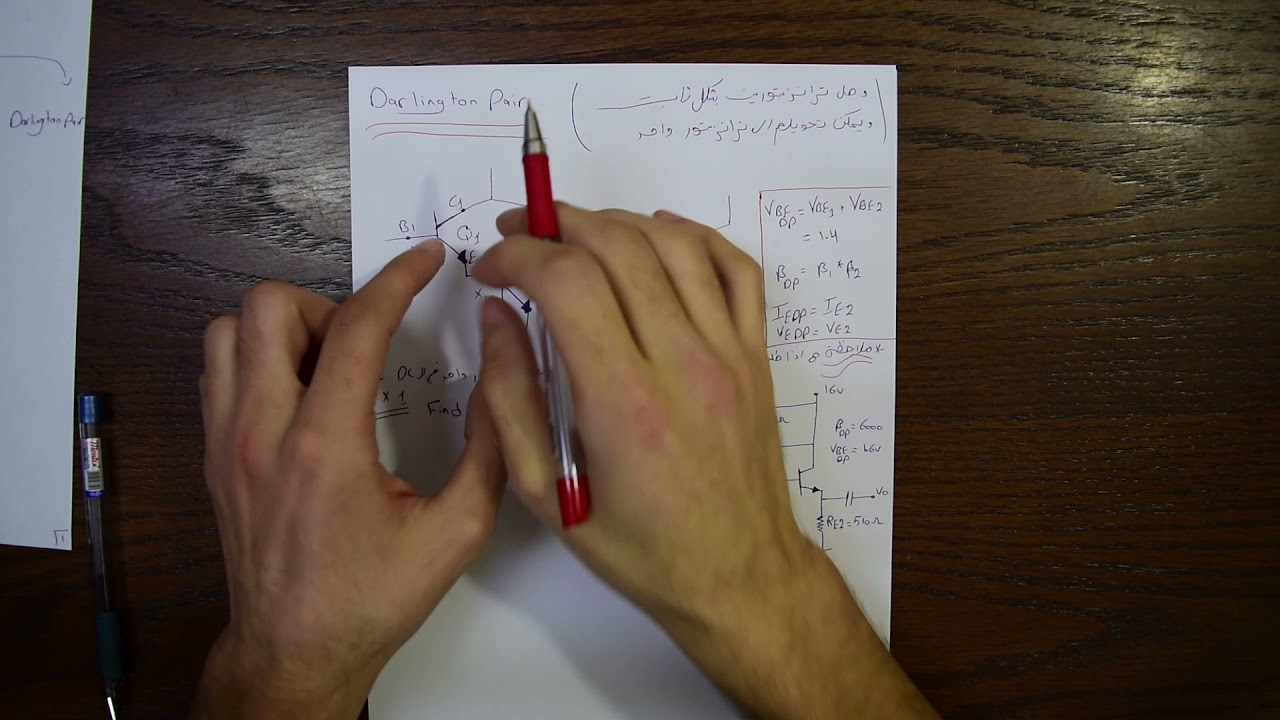 Darlington Pair
Darlington Pair
وصل ترانزستورين بشكل ثابت
ويمكن تحويلهم الى ترانزستور واحد
C1
B1
Q1
E
x
VBE DP = VBE1 + VBE2
= 1.4
βDP = β1 * β2
IEDP = IE2
VEDP = VE2
* ملاحظة
DC
x 1
Find
16V
βDP = 6000
VBE DP = 1.6V
Vo
RE2 = 510Ω